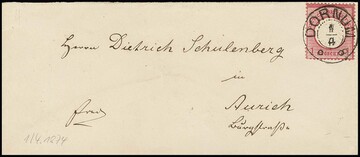 DORNUM
1/4
Herrn Dietrich Schulenberg
in
Aurich
Burgstraße
frei
1/4.1874